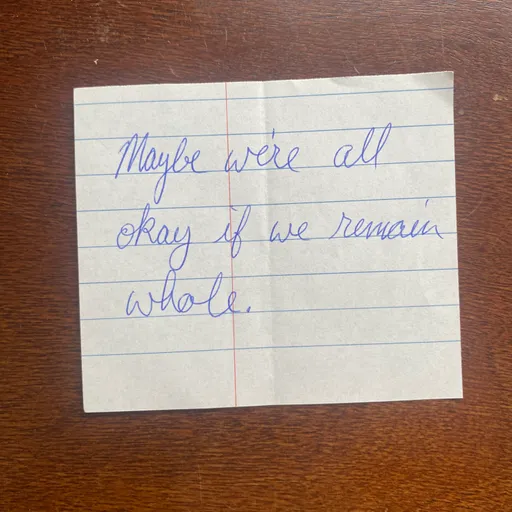 Maybe we're all
okay if we remain
whole.